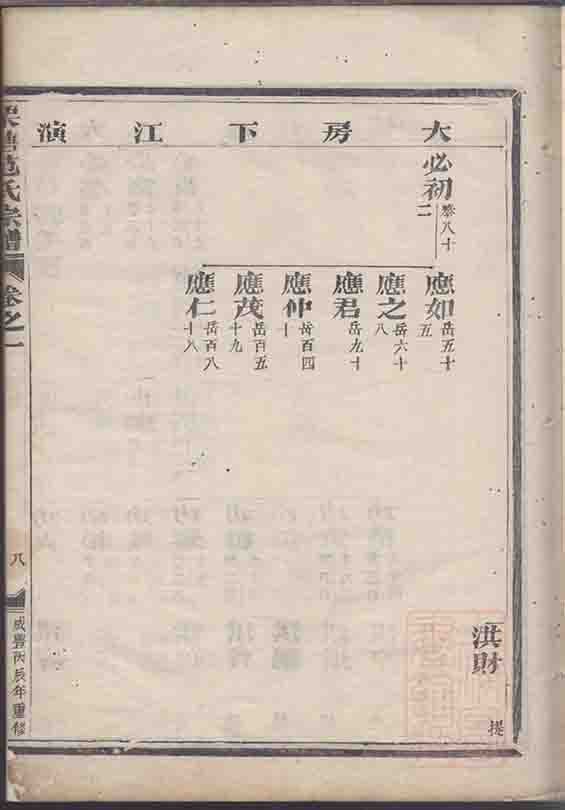 大房下江演
必初 二
八十
應如 岳五十五
應之 岳六十八
應君 岳九十
應仲 岳百四十
應茂 岳百五十九
應仁 岳百八十八
淇財 提
氏宗譜 卷之一
八
咸豐丙辰年重修